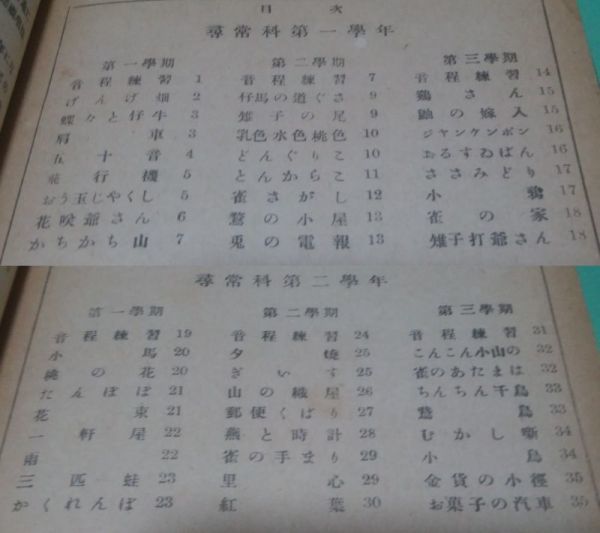 目次
尋常科第一學年
第一學期 第二學期 第三學期
音程練習 1 音程練習 7 音程練習 14
げんげ畑 2 仔馬の道ぐさ 9 鶏さん 15
蝶々と仔牛 3 雉子の尾 9 鼬の嫁入 15
肩車 3 乳色水色桃色 10 ジャンケンポン 16
五十音 4 どんぐりこ 10 おるすゐばん 16
飛行機 5 とんからこ 11 ささみどり 17
おう玉じやくし 5 雀さがし 12 小鴉 17
花咲爺さん 6 鷲の小屋 13 雀の家 18
かちかち山 7 兎の電報 13 雉子打爺さん 18
尋常科第二學年
第一學期 第二學期 第三學期
音程練習 19 音程練習 24 音程練習 31
小馬 20 夕燒 25 こんこん小山の 32
桃の花 20 ぎいす 25 雀のあたまは 32
たんぽぽ 21 山の織屋 26 ちんちん千鳥 33
花束 21 郵便くばり 27 鵞鳥 33
一軒屋 22 燕と時計 28 むかし噺 34
雨 22 雀の手まり 29 小鳥 34
三匹蛙 23 里心 29 金貨の小徑 35
かくれんぼ 23 紅葉 30 お菓子の汽車 35